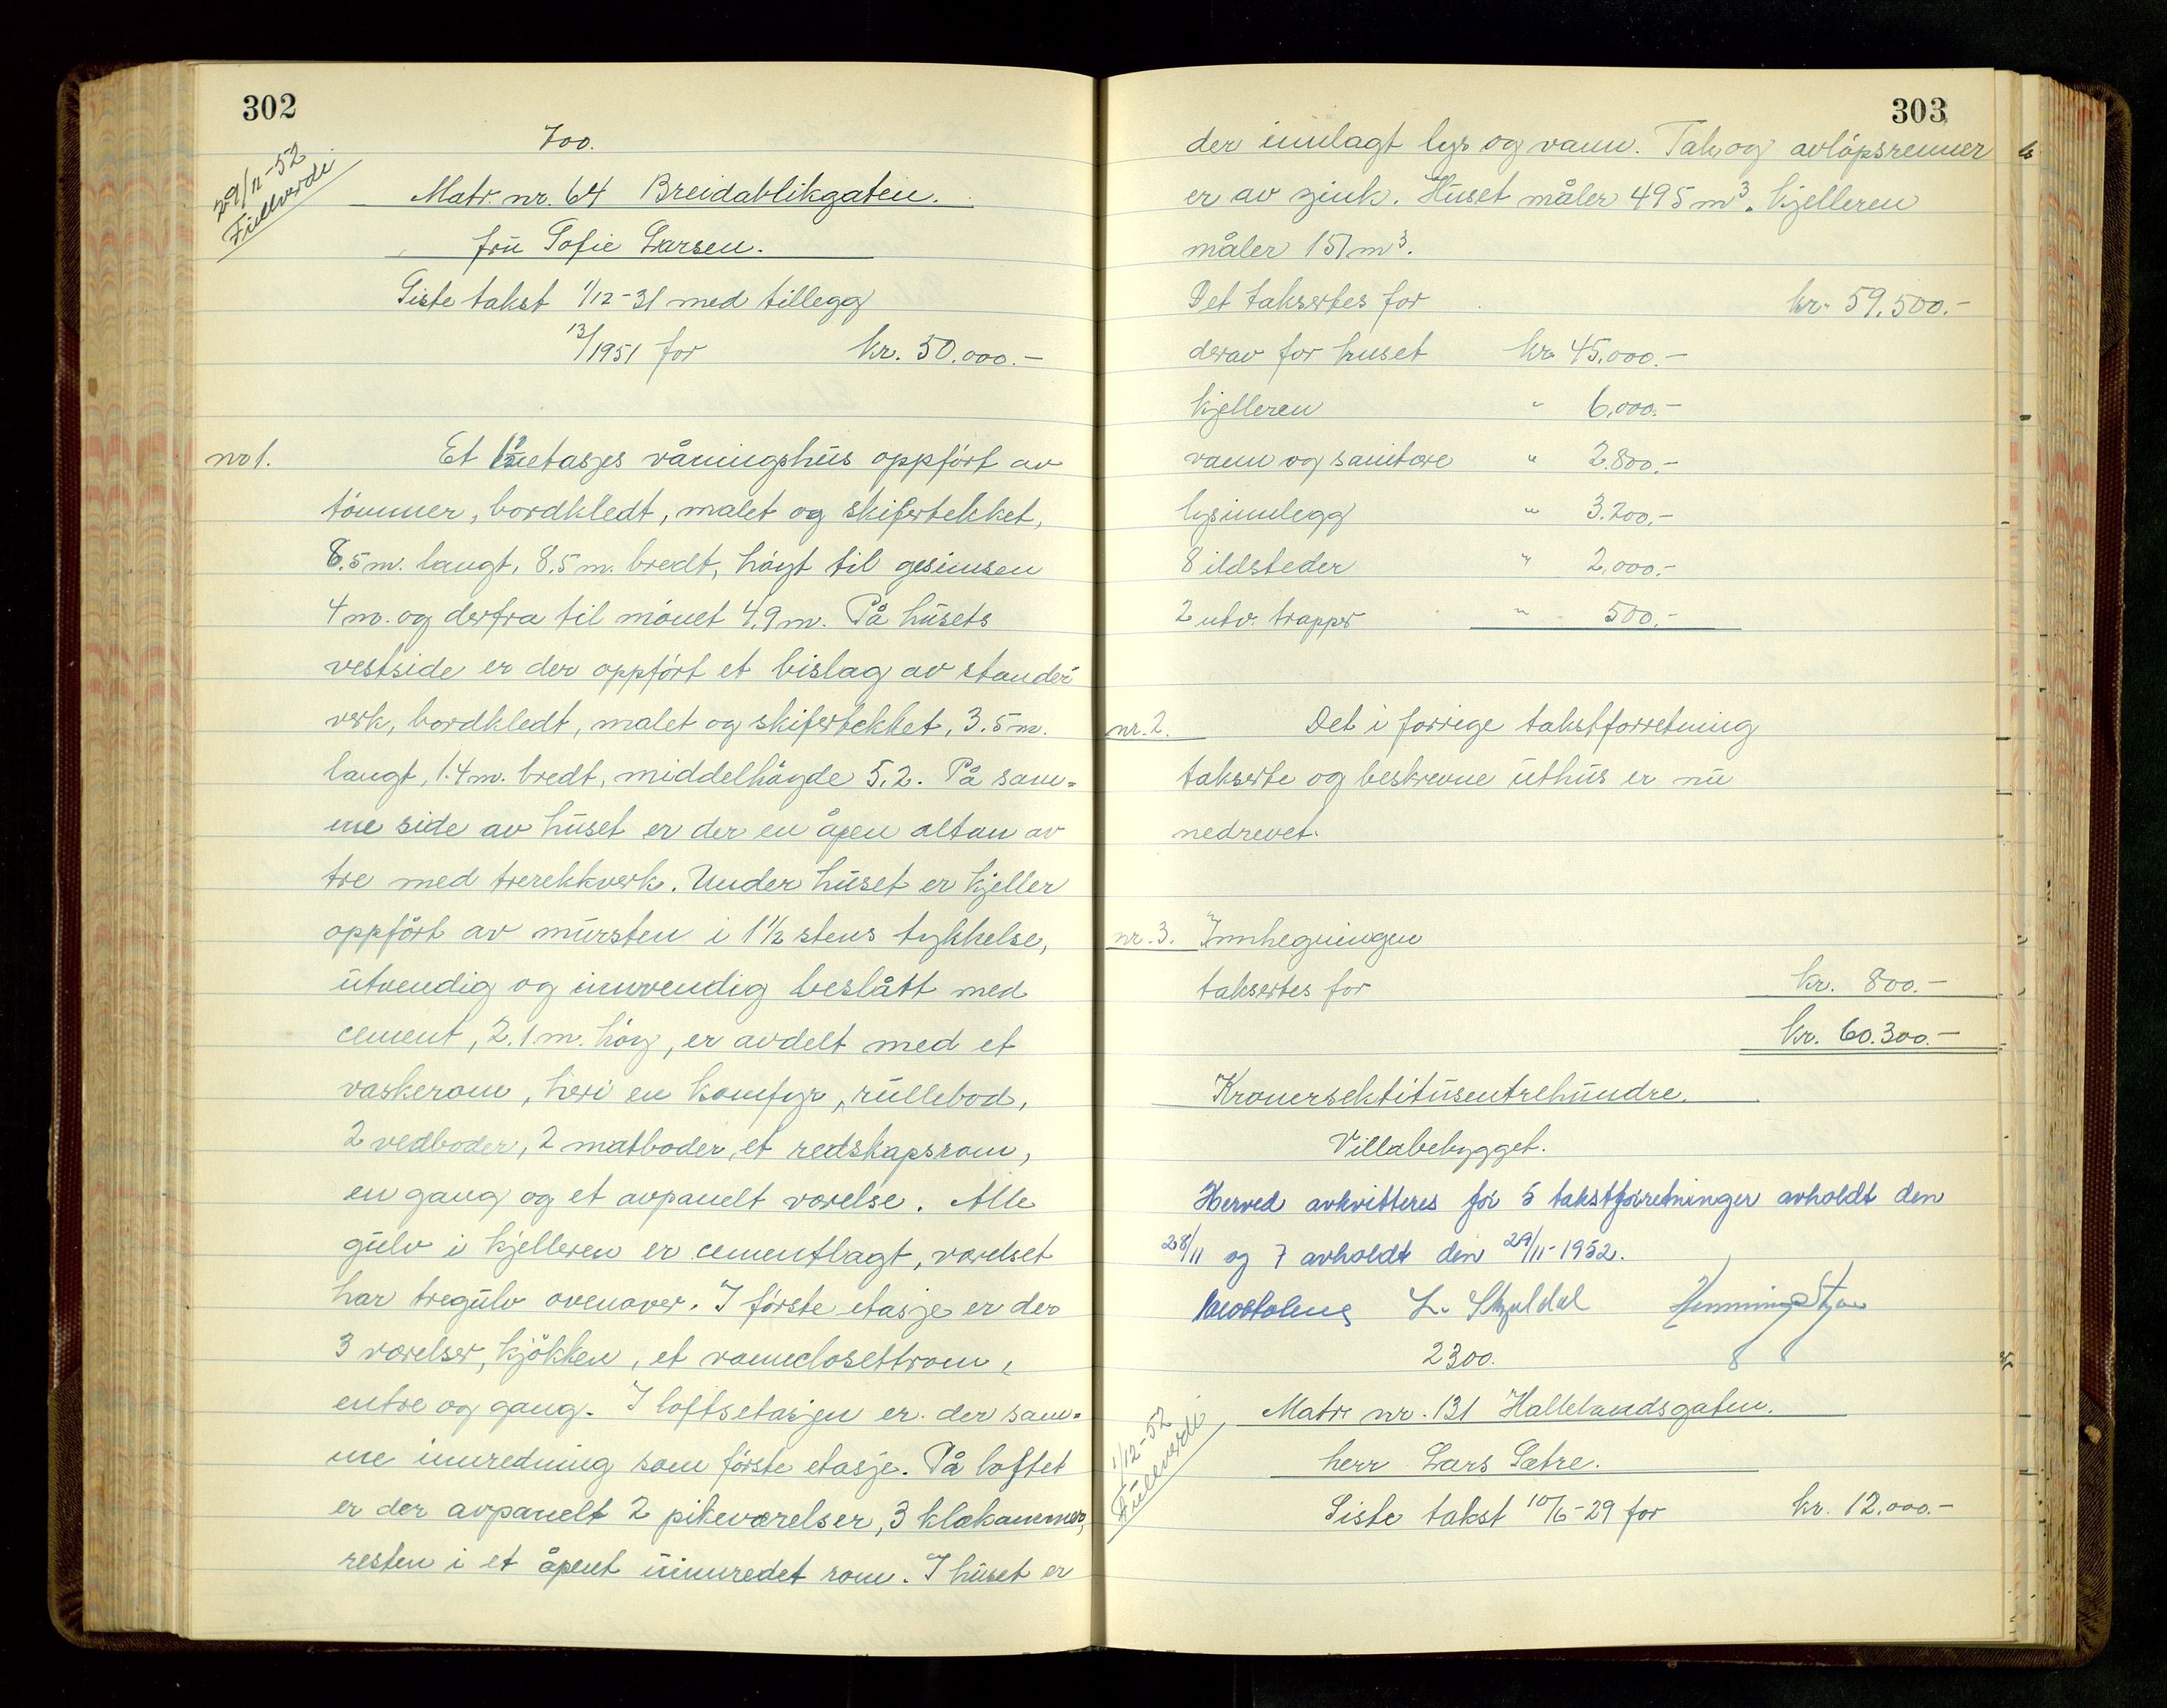 302
700.
29/11-52
Fullverdi
Matr. nr. 64 Breidablikgaten.
fru Sofie Larsen.
Siste takst 1/12-31 med tillegg
13/1951 for kr. 50.000.-
nr 1. Et etasjes våningshus oppført av
tømmer, bordkledt, malet og skifertekket,
8.5 m. langt, 8.5 m. bredt, høyt til gesimsen
4 m. og derfra til mønet 4.9 m. På husets
vestside er der oppført et bislag av stander
verk, bordkledt, malet og skifertekket, 3.5 m.
langt, 1.4 m. bredt, middelhøyde 5.2. På sam=
me side av huset er der en åpen altan av
tre med trerekkverk. Under huset er kjeller
oppført av mursten i 1 1/2 stens tykkelse,
utvendig og innvendig beslått med
cement, 2.1 m. høy, er avdelt med et
vaskerom, heri en komfyr, rullebod,
2 vedboder, 2 matboder, et redskapsrom,
en gang og et avpanelt værelse. Alle
gulv i kjelleren er cementlagt, værelset
har tregulv ovenover. I første etasje er der
3 værelser, kjøkken, et vannclosettrom,
entre og gang. I loftsetasjen er der sam=
me innredning som første etasje. På loftet
er der avpanelt 2 pikeværelser, 3 klækammer,
resten i et åpent uinnredet rom. I huset er
303
der innlagt lys og vann. Tak og avløpsrenner
er av zink. Huset måler 495 m³. Kjelleren
måler 151 m³.
Det taksertes for kr. 59.500.-
derav for huset kr. 45.000.-
kjelleren " 6.000.-
vann og sanitære " 2.800.-
lysinnlegg " 3.200.-
8 ildsteder " 2.000.-
2 utv. trapper " 500.-
nr. 2. Det i forrige takstforretning
takserte og beskrevne uthus er nu
nedrevet.
nr. 3. Innhegningen
taksertes for kr. 800.-
kr. 60.300.-
Kronersekstitusentrehundre.
Villabebygget.
Herved avkvitteres for 5 takstforretninger avholdt den
28/11 og 7 avholdt den 29/11-1952.
L. Skjeldal Henning
2300.
1/12-52
Fullverdi
Matr. nr. 131 Hallelandsgaten.
herr Lars Sætre.
Siste takst 10/6-29 for kr. 12.000.-